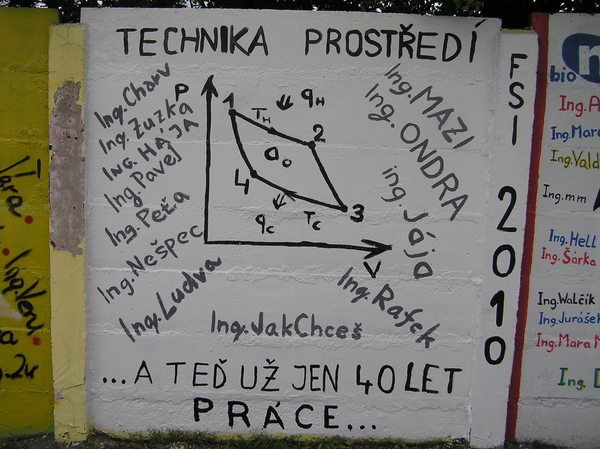 TECHNIKA PROSTŘEDÍ
Ing. Charv
Ing. Zuzka
ING. HÁJA
Ing Pavej
Ing. Peťa
Ing. Nešpec
Ing. Ludva
P
V
1
2
3
4
T_H
q_H
a_o
q_c
T_c
Ing. MAZI
Ing. ONDRA
ing. Jája
Ing. Rafek
Ing. JakChceš
...A TEĎ UŽ JEN 40 LET
PRÁCE...
FSI 2010
bio
Ing.
Ing. Mar
Ing. Vald
Ing. mm
Ing. Hell
Ing. Šárka
Ing. Walčík
Ing. Jurášek
Ing. Mara M
Ing.
Ing. Veru.